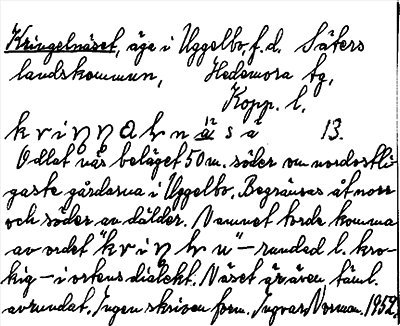 Kringelnäset, äge i Uggelbo, f.d. Säters
landskommun, Hedemora tg,
Kopp. l.
13.
Odlat näs beläget 50 m. söder om nordostli-
gaste gårdarna i Uggelbo. Begränsas åt norr
och söder av dälder. Namnet torde komma
av ordet "kriŋlu" – rundad l. kro-
kig – i ortens dialekt. Näset är även täml.
avrundat. Ingen skriven form. Ingvar Norman. 1952.